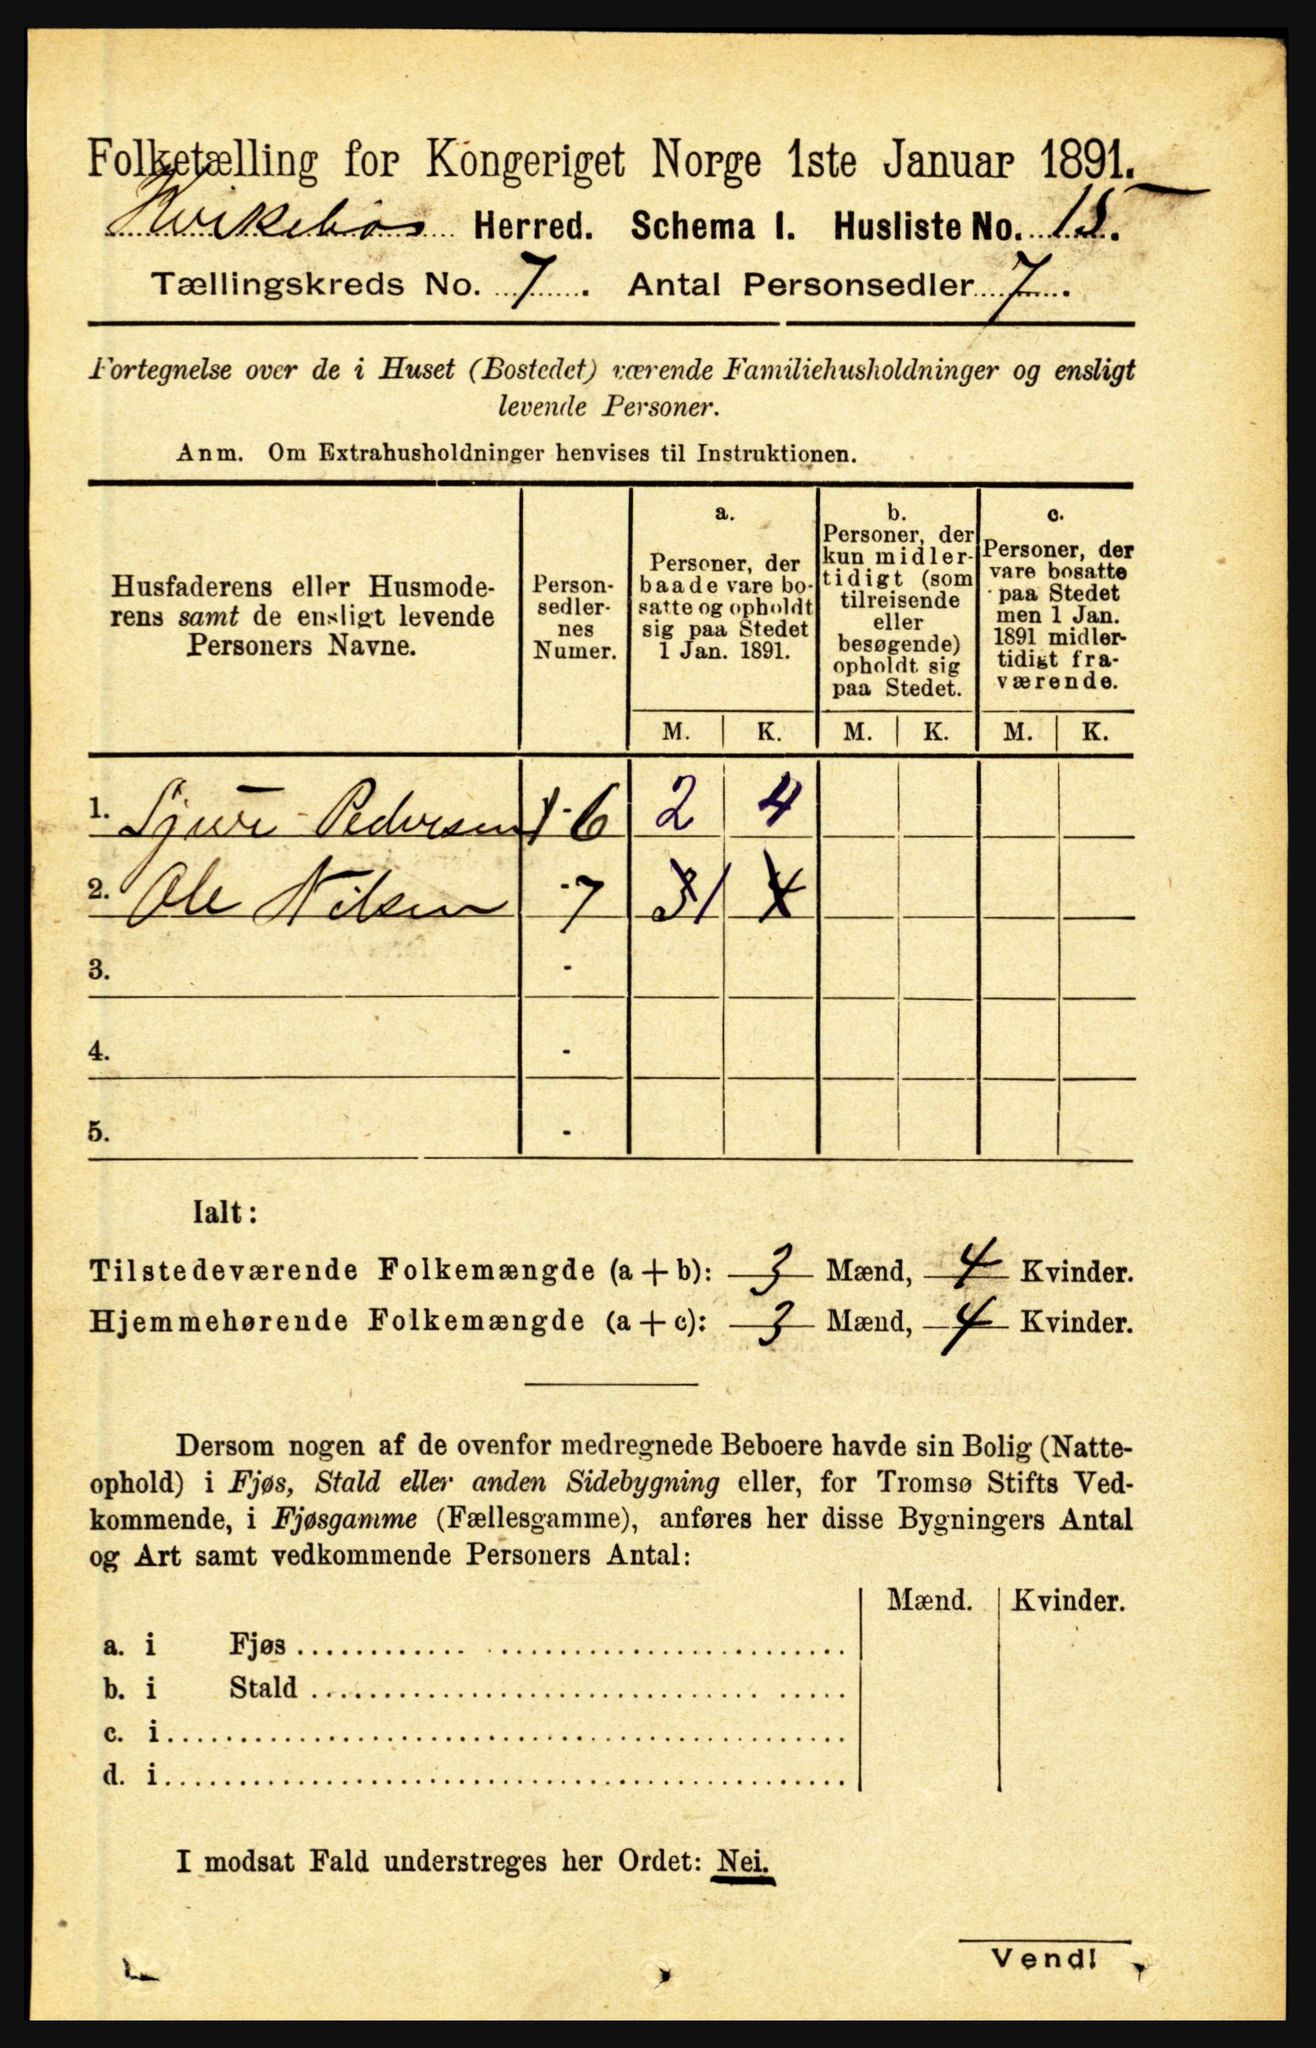 Folketælling for Kongeriget Norge 1ste Januar 1891.
Kvikebös Herred. Schema I. Husliste No. 15.
Tællingskreds No. 7. Antal Personsedler 7.
Fortegnelse over de i Huset (Bostedet) værende Familiehusholdninger og ensligt
levende Personer.
Anm. Om Extrahusholdninger henvises til Instruktionen.
Husfaderens eller Husmode-
rens samt de ensligt levende
Personers Navne.
Person-
sedler-
nes
Numer.
a.
Personer, der
baade vare bo-
satte og opholdt
sig paa Stedet
1 Jan. 1891.
b.
Personer, der
kun midler-
tidigt (som
tilreisende
eller
besøgende)
opholdt sig
paa Stedet.
c.
Personer, der
vare bosatte
paa Stedet
men 1 Jan.
1891 midler-
tidigt fra-
værende.
M. K. M. K. M. K.
1. Sjur Pedersen 1-6 2 4
2. Ole Nilsen -7 3 1 4
3. -
4. -
5. -
Ialt:
Tilstedeværende Folkemængde (a+b): 3 Mænd, 4 Kvinder.
Hjemmehørende Folkemængde (a+c): 3 Mænd, 4 Kvinder.
Dersom nogen af de ovenfor medregnede Beboere havde sin Bolig (Natte-
ophold) i Fjøs, Stald eller anden Sidebygning eller, for Tromsø Stifts Ved-
kommende, i Fjøsgamme (Fællesgamme), anføres her disse Bygningers Antal
og Art samt vedkommende Personers Antal:
Mænd. Kvinder.
a. i Fjøs
b. i Stald
c. i
d. i
I modsat Fald understreges her Ordet: Nei.
Vend!